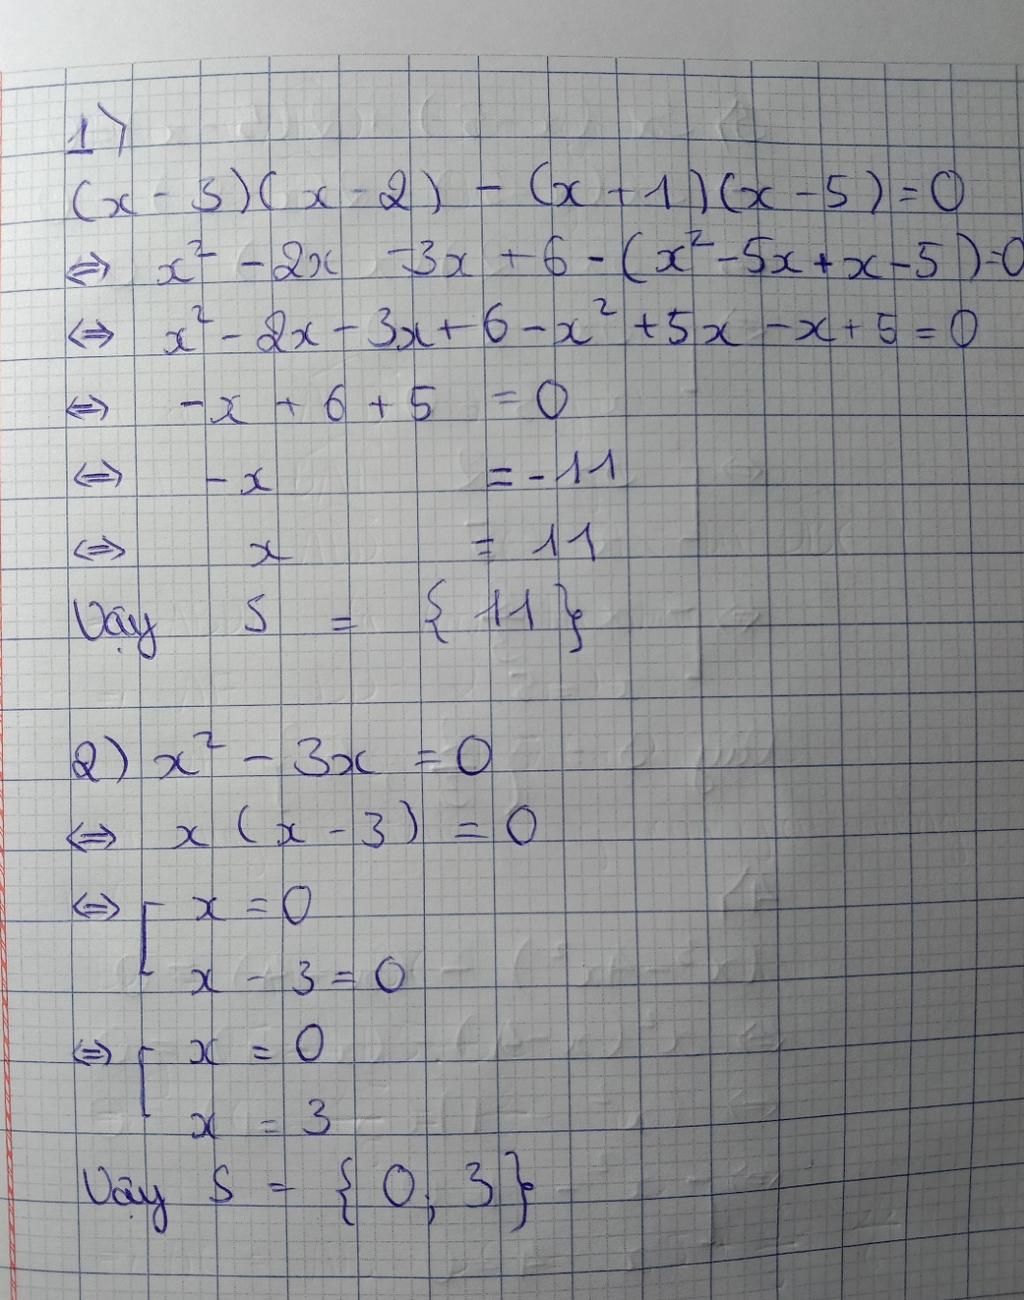 1)
(x - 3)(x - 2) - (x + 1)(x - 5) = 0
⇔ x² - 2x - 3x + 6 - (x² - 5x + x - 5) = 0
⇔ x² - 2x - 3x + 6 - x² + 5x - x + 5 = 0
⇔ -x + 6 + 5 = 0
⇔ -x = -11
⇔ x = 11
Vậy S = { 11 }
2) x² - 3x = 0
⇔ x (x - 3) = 0
⇔ [ x = 0
x - 3 = 0
⇔ [ x = 0
x = 3
Vậy S = { 0, 3 }